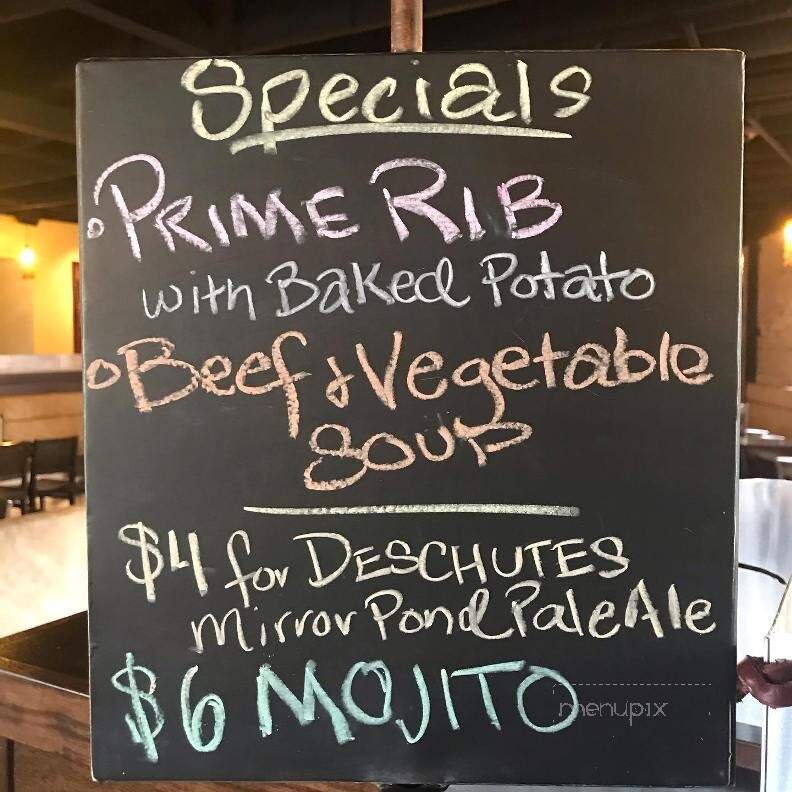 Specials
• PRIME RIB
with Baked Potato
• Beef & Vegetable
Soup
$4 for DESCHUTES
Mirror Pond Pale Ale
$6 MOJITO
menupix